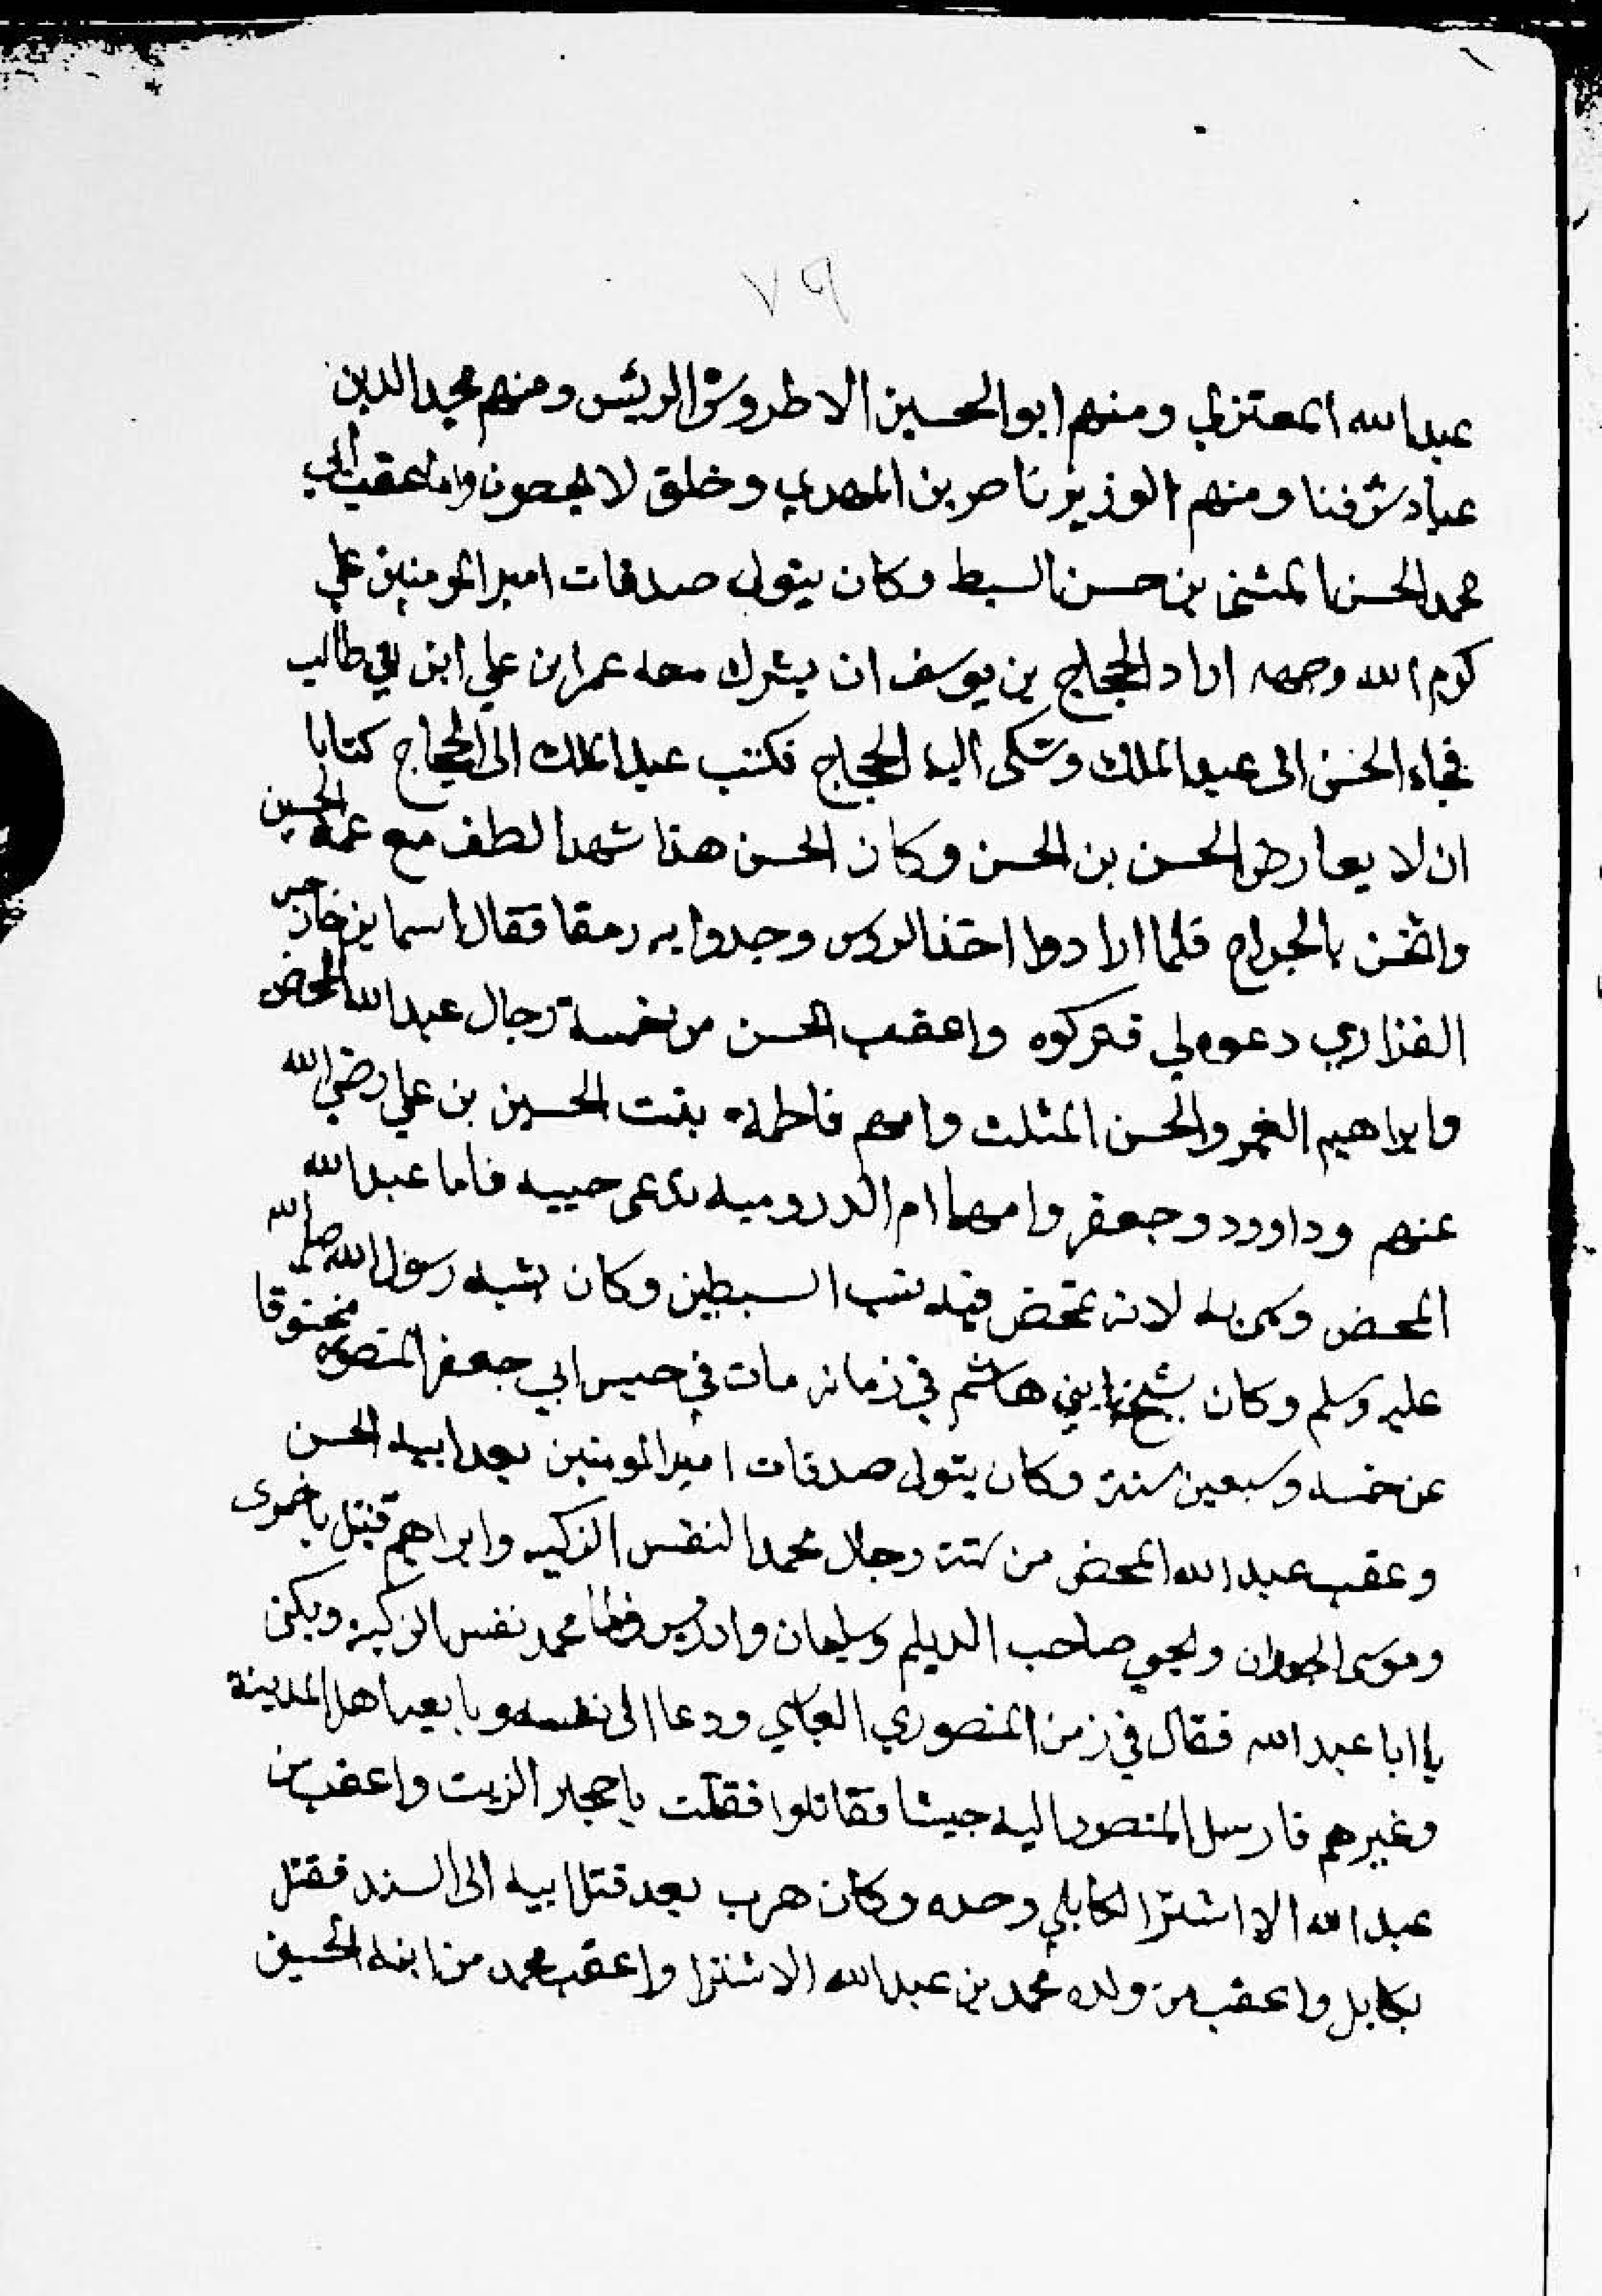 ٧٩
عبدالله المعتزلي ومنهم ابوالحسين الاطروش الريئس ومنهم مجدالدين
عباد شرفنا ومنهم الوزير ناصر بن المهدي وخلق لا يحصون واما عقب ابي
محمدالحسن المثنى بن حسن السبط وكان يتولى صدقات اميرالمومنين علي
كرم الله وجهه اراد الحجاج بن يوسف ان يشرك معه عمرابن علي ابن ابي طالب
فجاء الحسن الى عبدالملك وشكى اليه الحجاج فكتب عبدالملك الى الحجاج كتابا
ان لا يعارض الحسن بن الحسن وكان الحسن هذا شهدا لطف مع عمه الحسين
واثخن بالجراح فلما ارادوا اخذالروس وجدوا به رمقا فقال اسما بن خارجه
الفزاري دعوه لي فتركوه واعقب الحسن من خمسة رجال عبدالله المحض
وابراهيم الغمر والحسن المثلث وامهم فاطمة بنت الحسين بن علي رضي الله
عنهم وداوود وجعفر وامهما ام الد روميه تدعى حبيبه فاما عبدالله
المحض لانه تمحض فيه نسب السبطين وكان يشبه رسول الله صلى الله
عليه وسلم وكان شيخ بني هاشم في زمانه مات في حبس ابي جعفر المنصور مخنوقا
عن خمسه وسبعين سنة وكان يتولى صدقات اميرالمومنين بعد ابيه الحسن
وعقب عبدالله المحض من ستة رجال محمدالنفس الزكيه وابراهيم قتيل باخمرى
وموسى الجون ويحيي صاحب الديلم وسليمان وادريس فاما محمد نفس الزكية ويكنى
يا ابا عبدالله فقال في زمن المنصوري العباسي ودعا الى نفسه وبايعه اهل المدينة
وغيرهم فارسل المنصور اليه جيشا فقاتلوا فقتلت باحجار الزيت واعقب من
عبدالله الاشترا لكابلي وحده وكان هرب بعد قتل ابيه الى السند فقتل
بكابل واعقب من ولده محمد بن عبدالله الاشترا واعقب محمد من ابنه الحسين